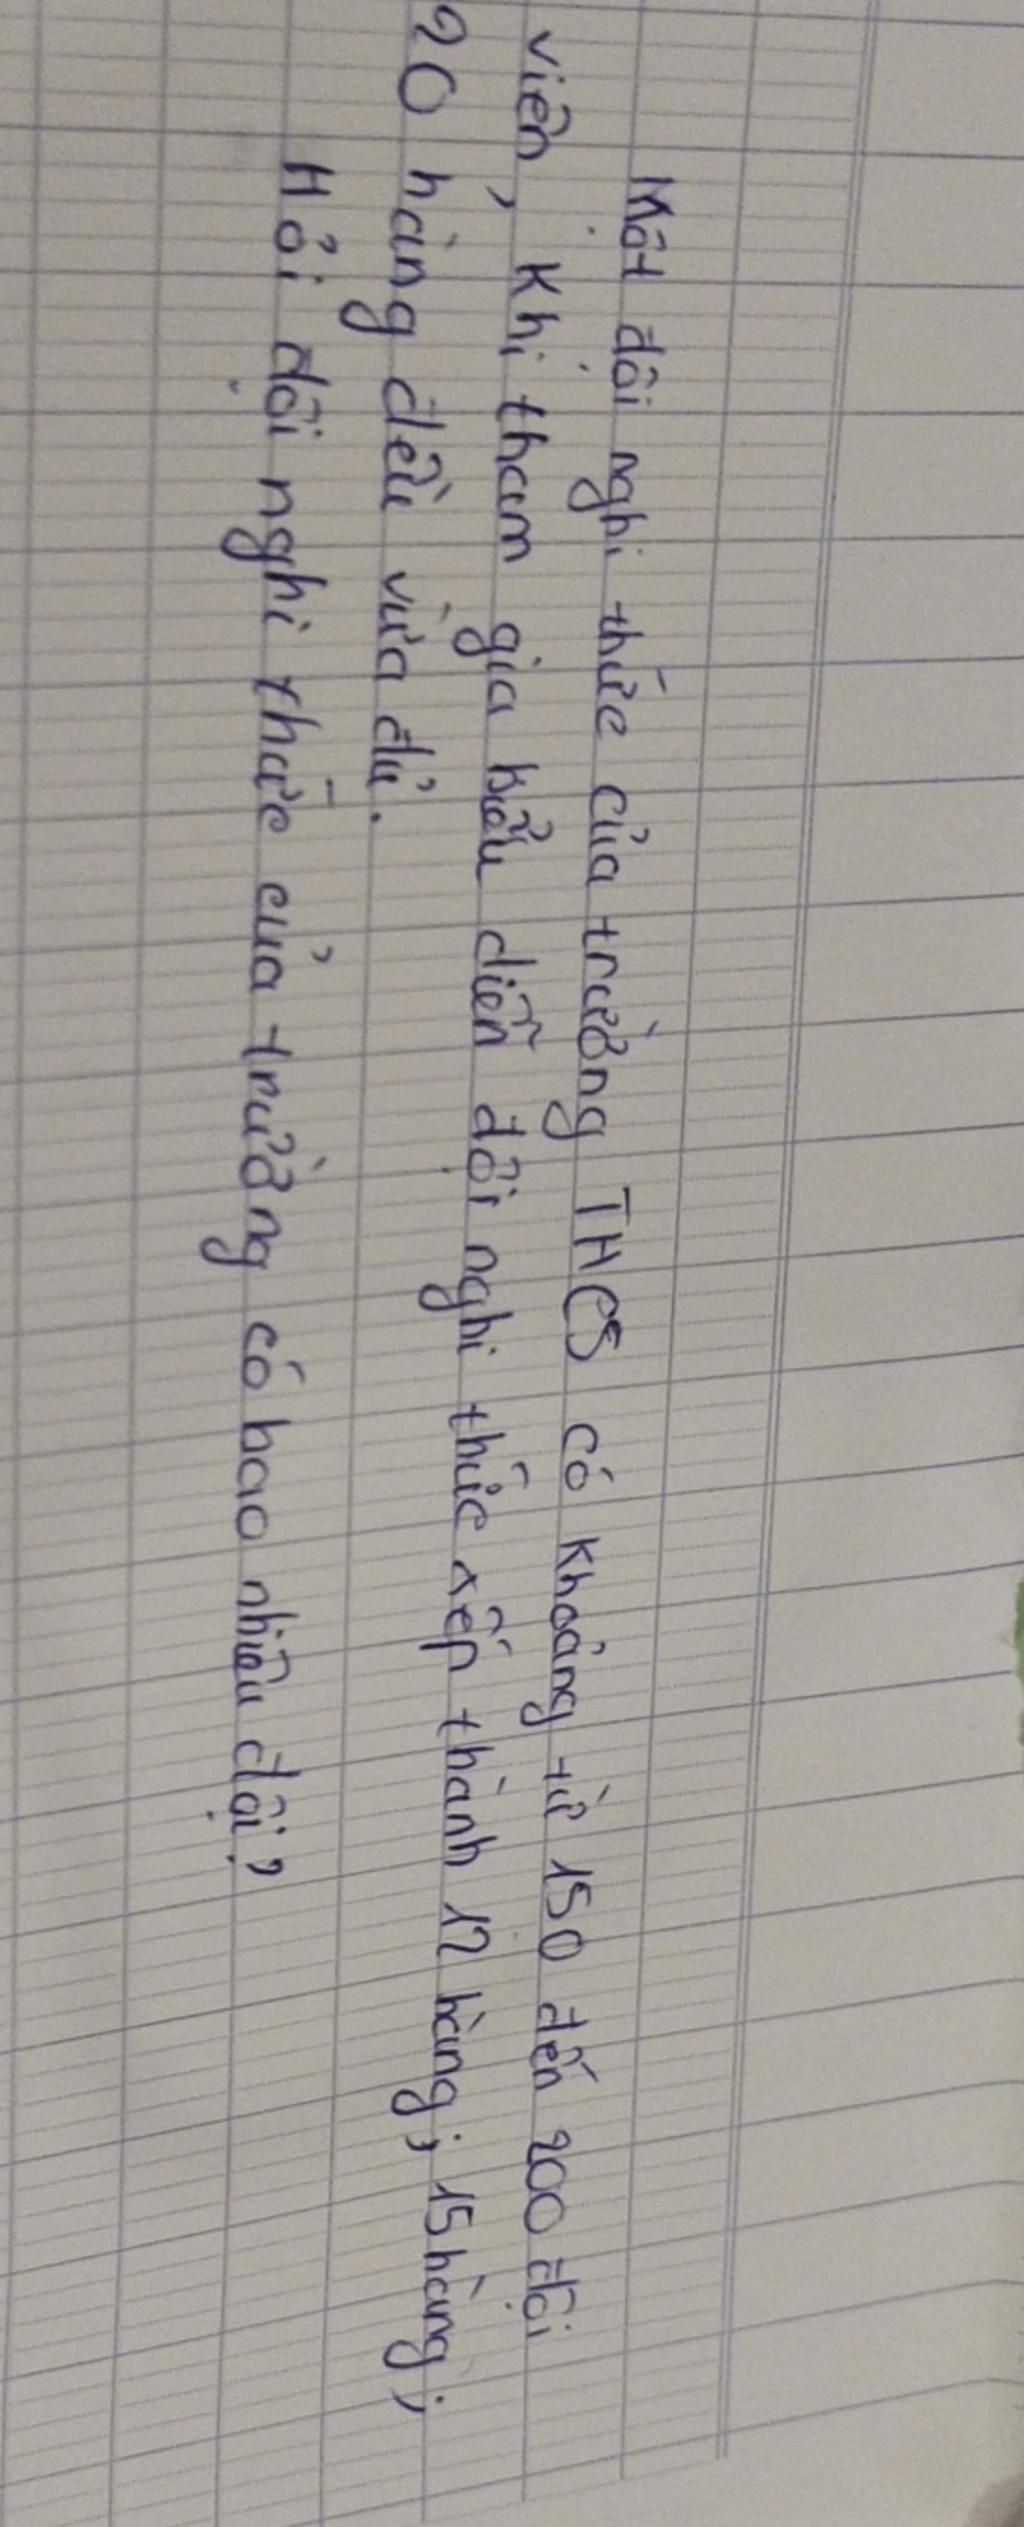 Một đội nghi thức của trường THCS có khoảng từ 150 đến 200 đội
viên, Khi tham gia biểu diễn đội nghi thức xếp thành 12 hàng; 15 hàng;
20 hàng đều vừa đủ.
Hỏi đội nghi thức của trường có bao nhiêu đội?